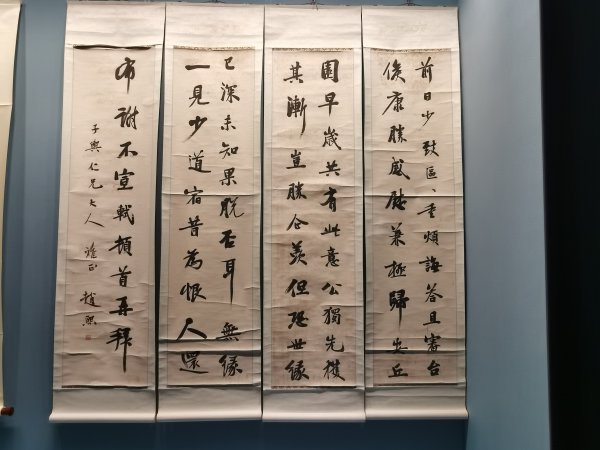 前日少致區、重煩誨答且審台
候康勝感慰兼極歸安丘
園早歲共有此意公獨先獲
其漸豈勝企羨但恐世緣
已深未知果脫否耳無緣
一見少道宿昔為恨人還
布謝不宣軾頓首再拜
子興仁兄大人雅正趙熙